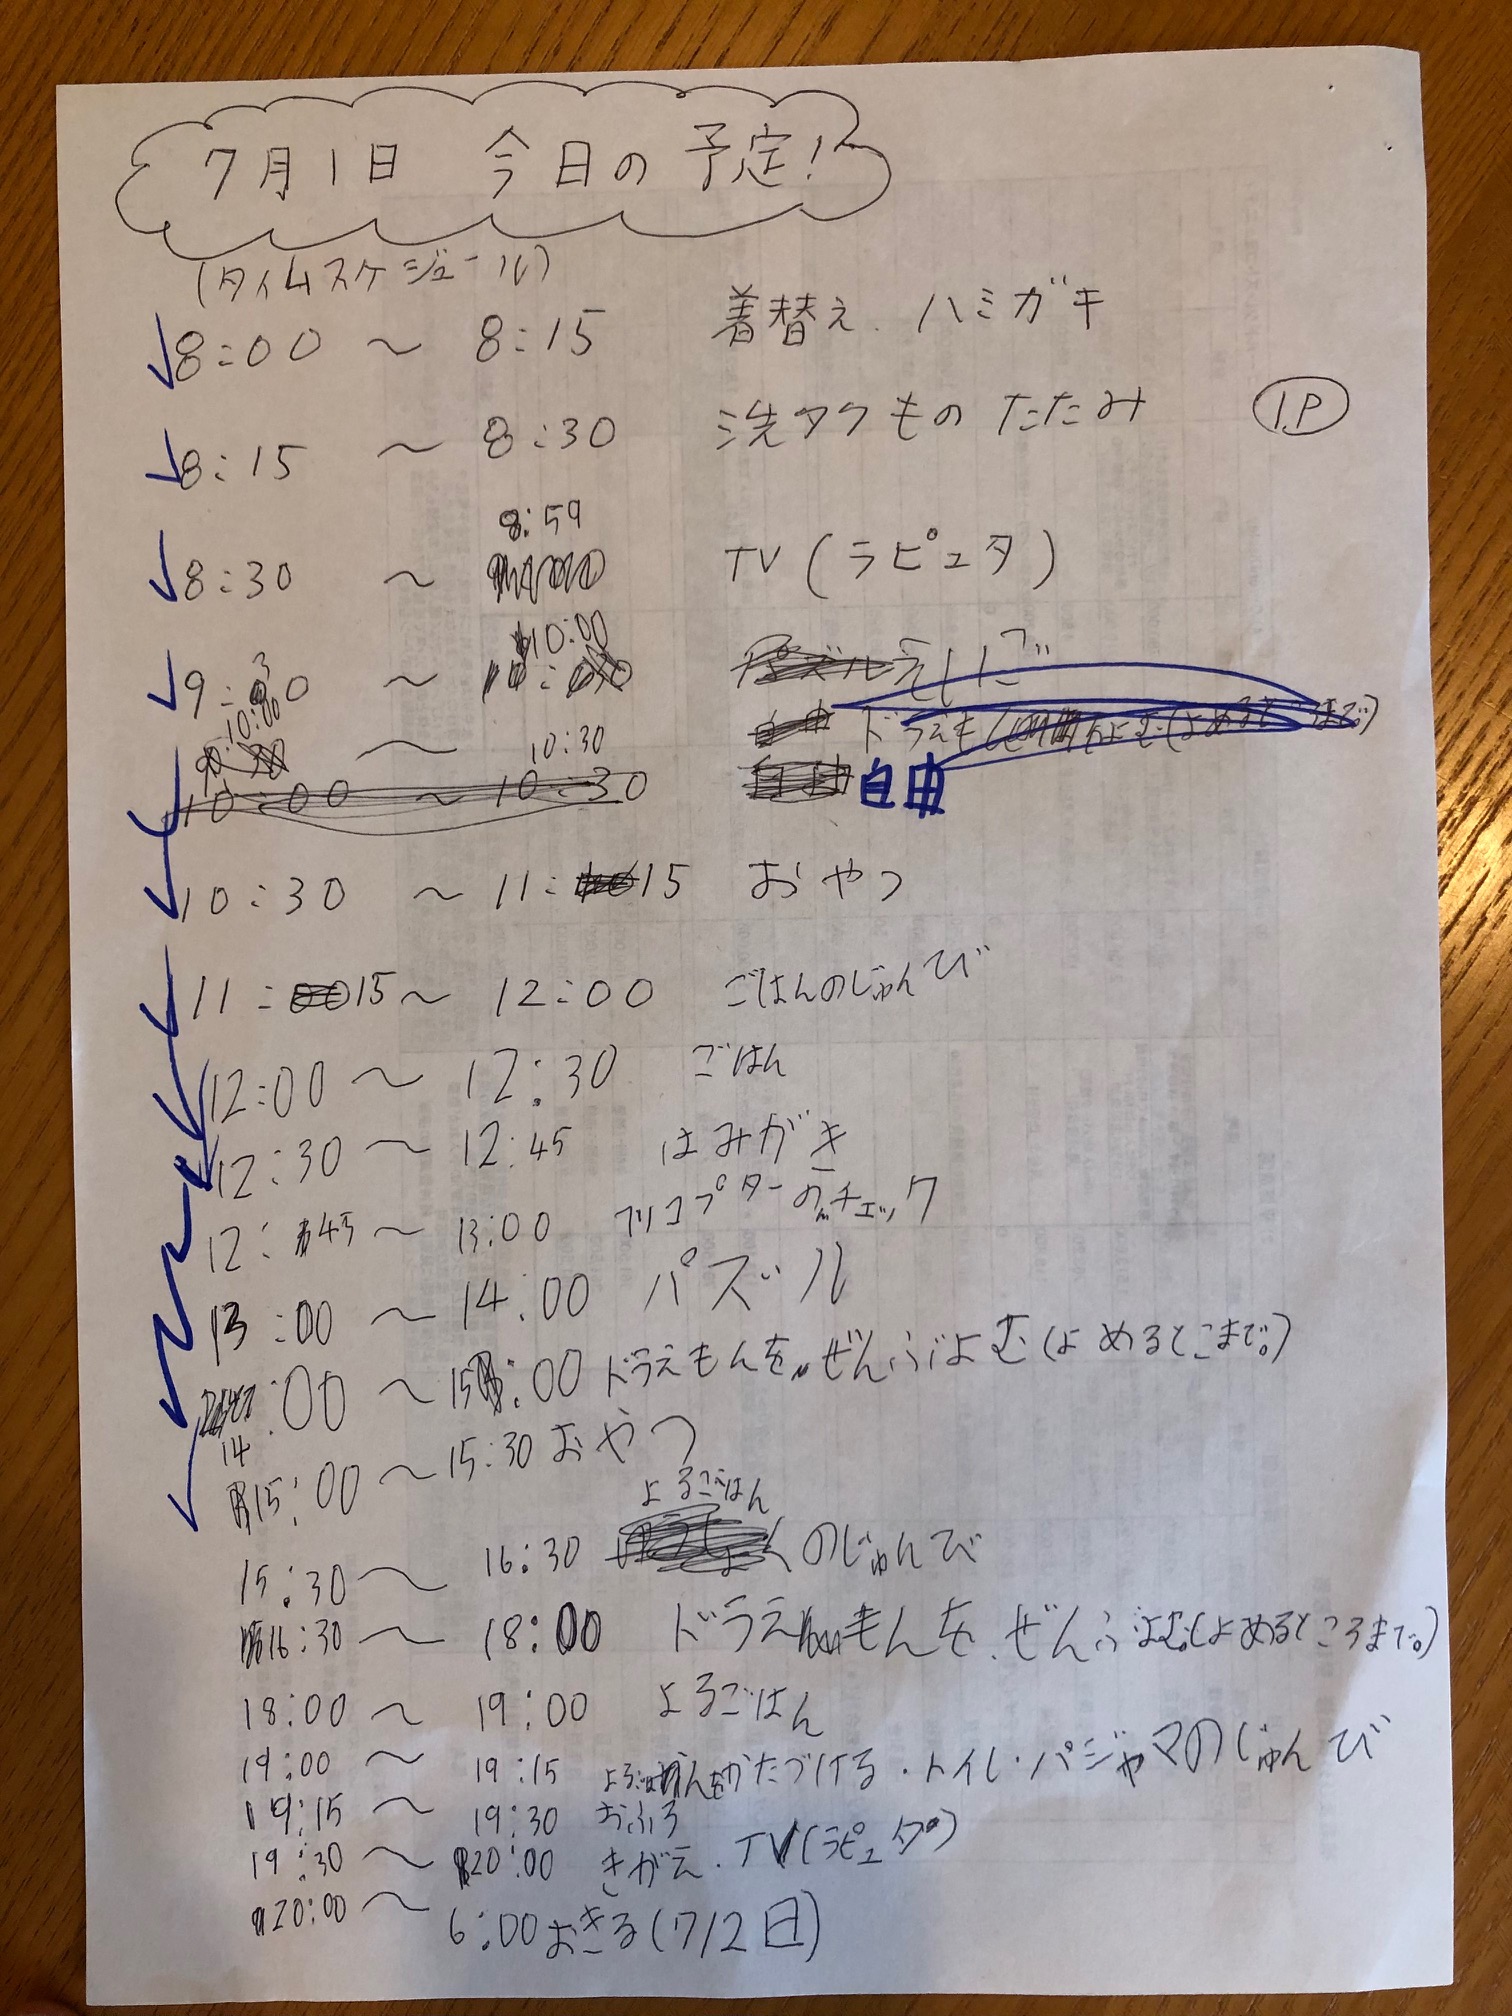 7月1日 今日の予定!
(タイムスケジュール)
8:00 ～ 8:15 着替え、ハミガキ
8:15 ～ 8:30 洗タクもの たたみ 1P
8:59
8:30 ～ TV(ラピュタ)
10:00
9:30 ～ えいご
10:00 ～ 10:30 ドラえもん よむ(よめるところまで)
10:00 ～ 10:30 自由 自由
10:30 ～ 11:15 おやつ
11:15 ～ 12:00 ごはんのじゅんび
12:00 ～ 12:30 ごはん
12:30 ～ 12:45 はみがき
12:45 ～ 13:00 プリコプターのチェック
13:00 ～ 14:00 パズル
:00 ～ 15:00 ドラえもんを、ぜんぶよむ(よめるとこまで。)
14
15:00 ～ 15:30 おやつ
よるごはん
15:30 ～ 16:30 のじゅんび
16:30 ～ 18:00 ドラえもんを、ぜんぶよむ。(よめるところまで。)
18:00 ～ 19:00 よるごはん
19:00 ～ 19:15 よるごはんをかたづける・トイレ・パジャマのじゅんび
19:15 ～ 19:30 おふろ
19:30 ～ 20:00 きがえ・TV(ラピュタ)
20:00 ～ 6:00おきる(7/2日)